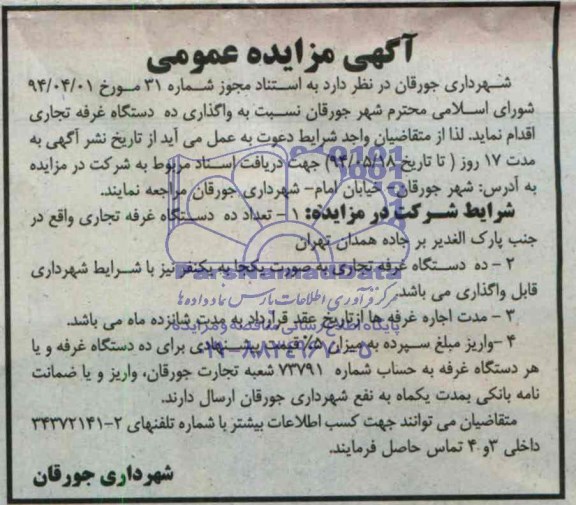 آگهی مزایده عمومی
شهرداری جورقان در نظر دارد به استناد مجوز شماره ۳۱ مورخ ۹۴/۰۴/۰۱
شورای اسلامی محترم شهر جورقان نسبت به واگذاری ده دستگاه غرفه تجاری
اقدام نماید. لذا از متقاضیان واجد شرایط دعوت به عمل می آید از تاریخ نشر آگهی به
مدت ۱۷ روز ( تا تاریخ ۹۴/۰۵/۱۸) جهت دریافت اسناد مربوط به شرکت در مزایده
به آدرس: شهر جورقان- خیابان امام- شهرداری جورقان مراجعه نمایند.
شرایط شرکت در مزایده: ۱ – تعداد ده دستگاه غرفه تجاری واقع در
جنب پارک الغدیر بر جاده همدان تهران
۲ – ده دستگاه غرفه تجاری به صورت یکجا به یکنفر نیز با شرایط شهرداری
قابل واگذاری می باشد.
۳ – مدت اجاره غرفه ها از تاریخ عقد قرارداد به مدت شانزده ماه می باشد.
۴ –واریز مبلغ سپرده به میزان ۵٪ قیمت پیشنهادی برای ده دستگاه غرفه و یا
هر دستگاه غرفه به حساب شماره ۷۳۷۹۱ شعبه تجارت جورقان، واریز و یا ضمانت
نامه بانکی بمدت یکماه به نفع شهرداری جورقان ارسال دارند.
متقاضیان می توانند جهت کسب اطلاعات بیشتر با شماره تلفنهای ۲-۳۴۳۷۲۱۴۱
داخلی ۳و ۴ تماس حاصل فرمایند.
شهرداری جورقان
ParsNamadData
مرکز فرآوری اطلاعات پارس نماد داده ها
پایگاه اطلاع رسانی مناقصه و مزایده
۰۲۱-۸۸۳۴۹۶۷۰-۵